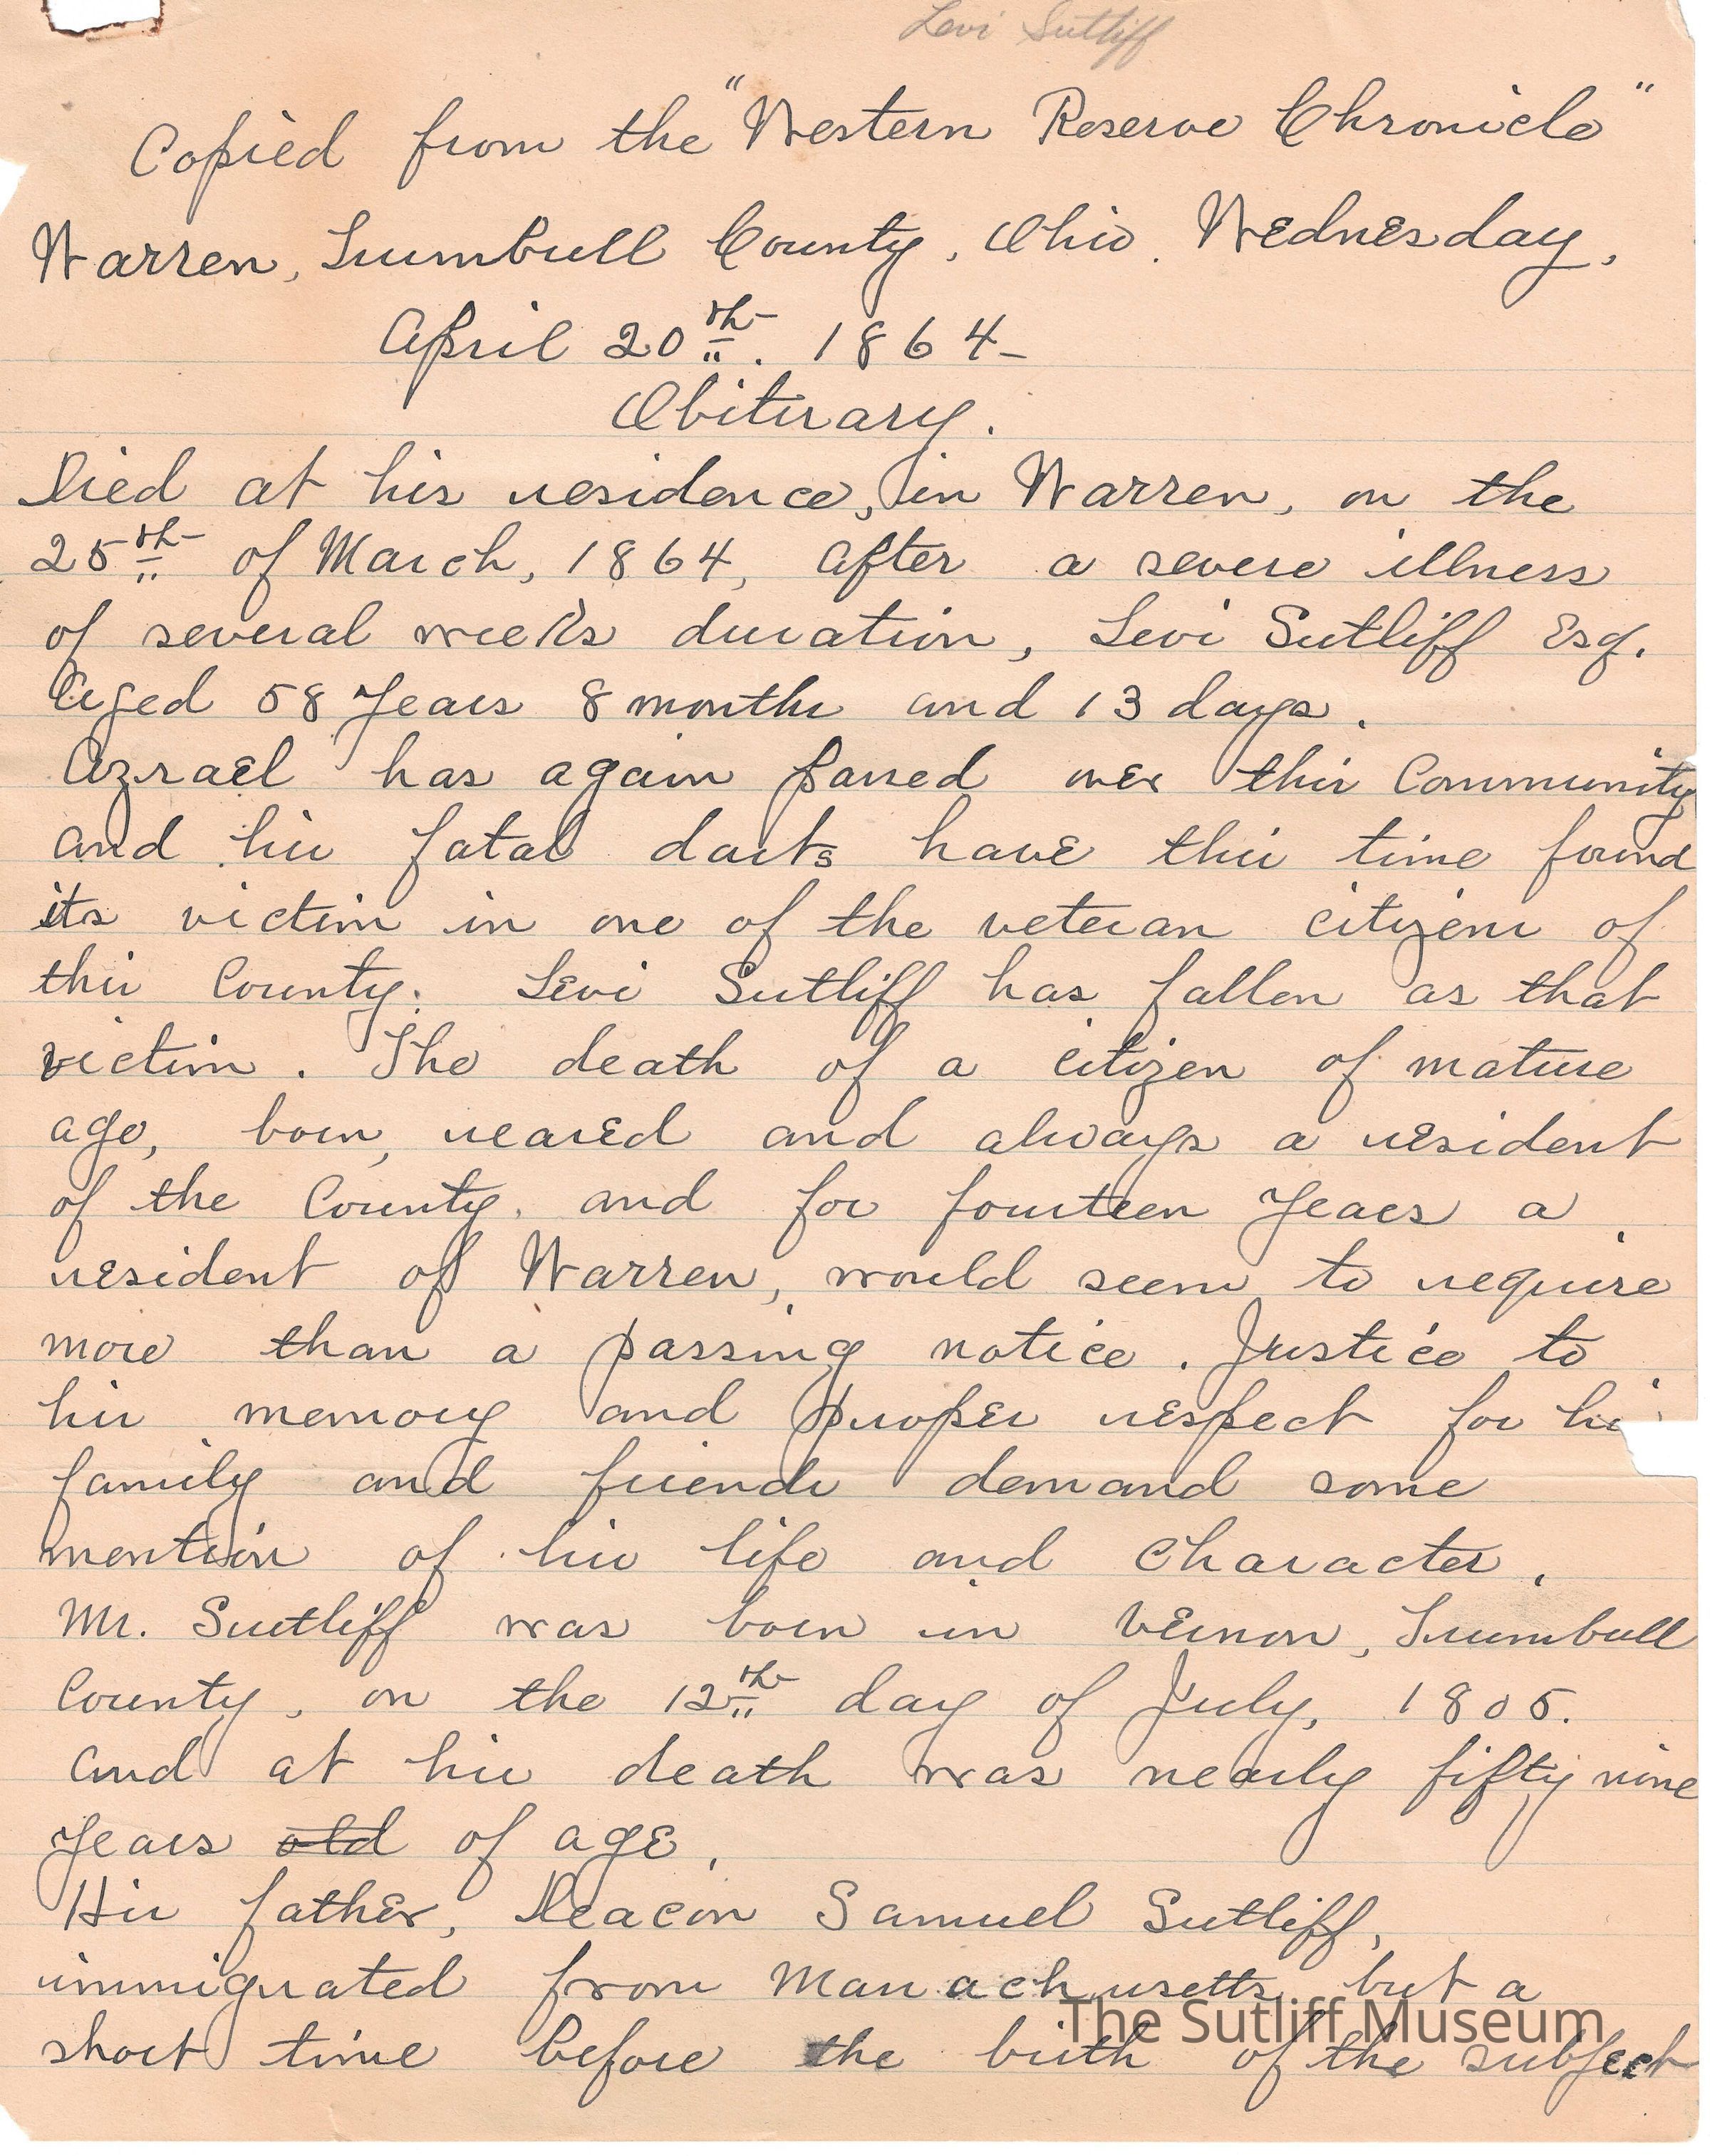 Levi Sutliff
Copied from the "Western Reserve Chronicle"
Warren, Trumbull County, Ohio. Wednesday,
April 20th. 1864-
Obituary.
Died at his residence, in Warren, on the
25th of March, 1864, after a severe illness
of several weeks duration, Levi Sutliff Esq.
Aged 58 years 8 months and 13 days.
Azrael has again passed over this Community
and his fatal darts have this time found
its victim in one of the veteran citizens of
this County. Levi Sutliff has fallen as that
victim. The death of a citizen of mature
age, born, reared and always a resident
of the County, and for fourteen years a
resident of Warren, would seem to require
more than a passing notice. Justice to
his memory and proper respect for hi
family and friends demand some
mention of his life and character.
Mr. Sutliff was born in Vernon, Trumbull
County, on the 12th day of July, 1805.
and at his death was nearly fifty nine
years old of age.
His father, Deacon Samuel Sutliff,
immigrated from Massachusetts but a
short time before the birth of the subject
The Sutliff Museum